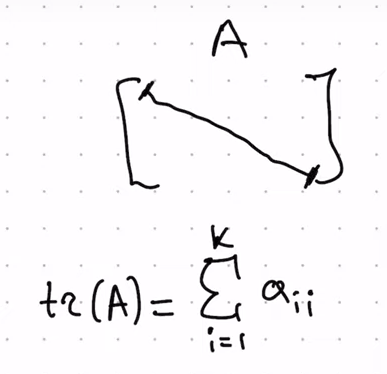 A
tr(A) = \sum_{i=1}^{k} a_{ii}